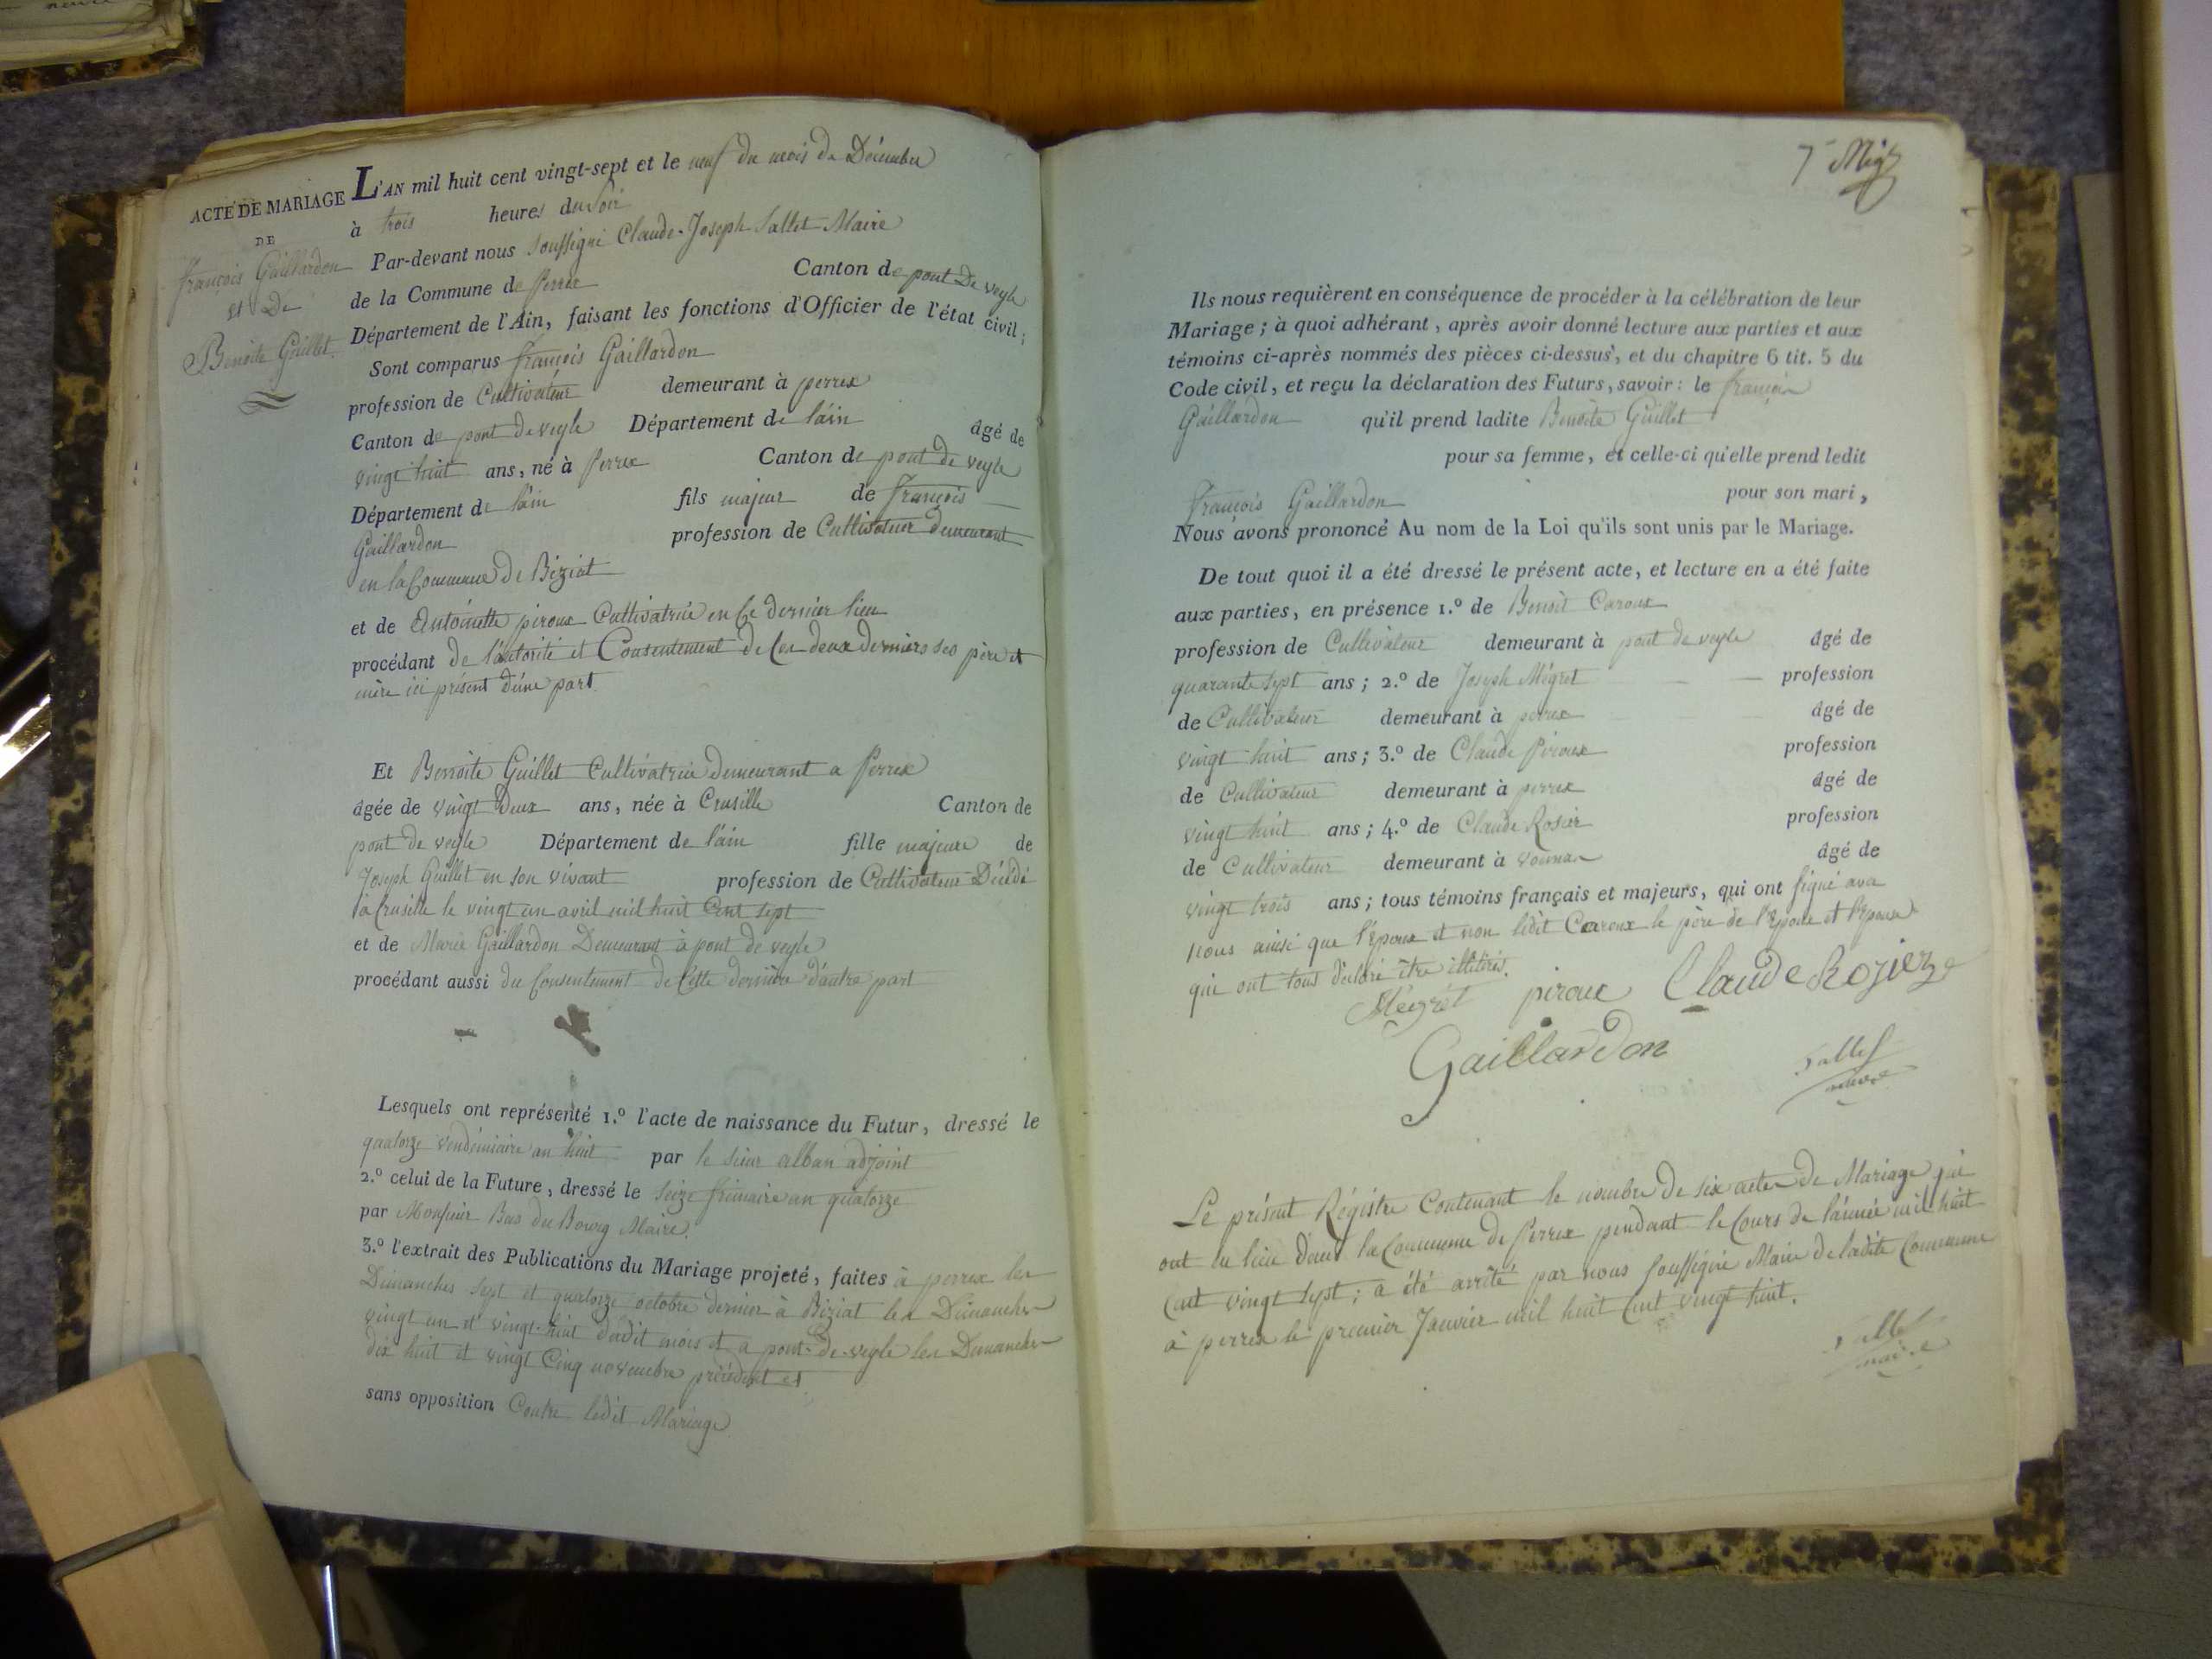 ACTE DE MARIAGE
DE
françois Gaillardon
et De
Benoite Guillet.
L'AN mil huit cent vingt-sept et le neuf du mois de Décembre
à trois heures du Soir
Par-devant nous soussigné Claude-Joseph Sallet Maire
de la Commune de Perrex Canton de pont De veyle
Département de l'Ain, faisant les fonctions d'Officier de l'état civil;
Sont comparus françois Gaillardon
profession de Cultivateur demeurant à perrex
Canton de pont de veyle Département de l'ain âgé de
vingt huit ans, né à Perrex Canton de pont de veyle
Département de l'ain fils majeur de françois
Gaillardon profession de Cultivateur demeurant
en la Commune de Biziat
et de Antoinette piroux Cultivatrice en Ce dernier lieu
procédant de l'autorité et Consentement de Ces deux derniers ses père et
mère ici présent d'une part.
Et Benoite Guillet Cultivatrice demeurant a Perrex
âgée de vingt deux ans, née à Crusille Canton de
pont de veyle Département de l'ain fille majeure de
Joseph Guillet en son vivant profession de Cultivateur Décédé
à Crusille le vingt un avril mil huit Cent sept
et de Marie Gaillardon Demeurant à pont de veyle
procédant aussi du Consentement de Cette dernière d'autre part
Lesquels ont représenté 1.º l'acte de naissance du Futur, dressé le
quatorze vendémiaire an huit par le sieur alban adjoint
2.º celui de la Future, dressé le seize frimaire an quatorze
par Monsieur Bas du Bourg Maire.
3.º l'extrait des Publications du Mariage projeté, faites à perrex les
Dimanches sept et quatorze octobre dernier à Biziat les Dimanches
vingt un et vingt-huit dudit mois et a pont-de-veyle les Dimanches
dix huit et vingt Cinq novembre précédent et
sans opposition Contre ledit Mariage
7
Ils nous requièrent en conséquence de procéder à la célébration de leur
Mariage; à quoi adhérant, après avoir donné lecture aux parties et aux
témoins ci-après nommés des pièces ci-dessus, et du chapitre 6 tit. 5 du
Code civil, et reçu la déclaration des Futurs, savoir: le françois
Gaillardon qu'il prend ladite Benoite Guillet
pour sa femme, et celle-ci qu'elle prend ledit
françois Gaillardon pour son mari,
Nous avons prononcé Au nom de la Loi qu'ils sont unis par le Mariage.
De tout quoi il a été dressé le présent acte, et lecture en a été faite
aux parties, en présence 1.º de Benoit Caroux
profession de Cultivateur demeurant à pont de veyle âgé de
quarante sept ans; 2.º de Joseph Mégret profession
de Cultivateur demeurant à perrex âgé de
vingt huit ans; 3.º de Claude Piroux profession
de Cultivateur demeurant à perrex âgé de
vingt huit ans; 4.º de Claude Rosier profession
de Cultivateur demeurant à vonnas âgé de
vingt trois ans; tous témoins français et majeurs, qui ont signé avec
nous ainsi que l'Epoux et non ledit Caroux le père de l'Epoux et l'Epouse
qui ont tous déclaré être illitérés.
Mégret piroux Claude Rozier
Gaillardon Sallet
maire
Le présent Régistre Contenant le nombre de six actes de Mariage qui
ont eu lieu dans la Commune de Perrex pendant le Cours de l'année mil huit
Cent vingt sept; a été arrêté par nous soussigné Maire de ladite Commune
à perrex le premier Janvier mil huit Cent vingt huit.
Sallet
maire